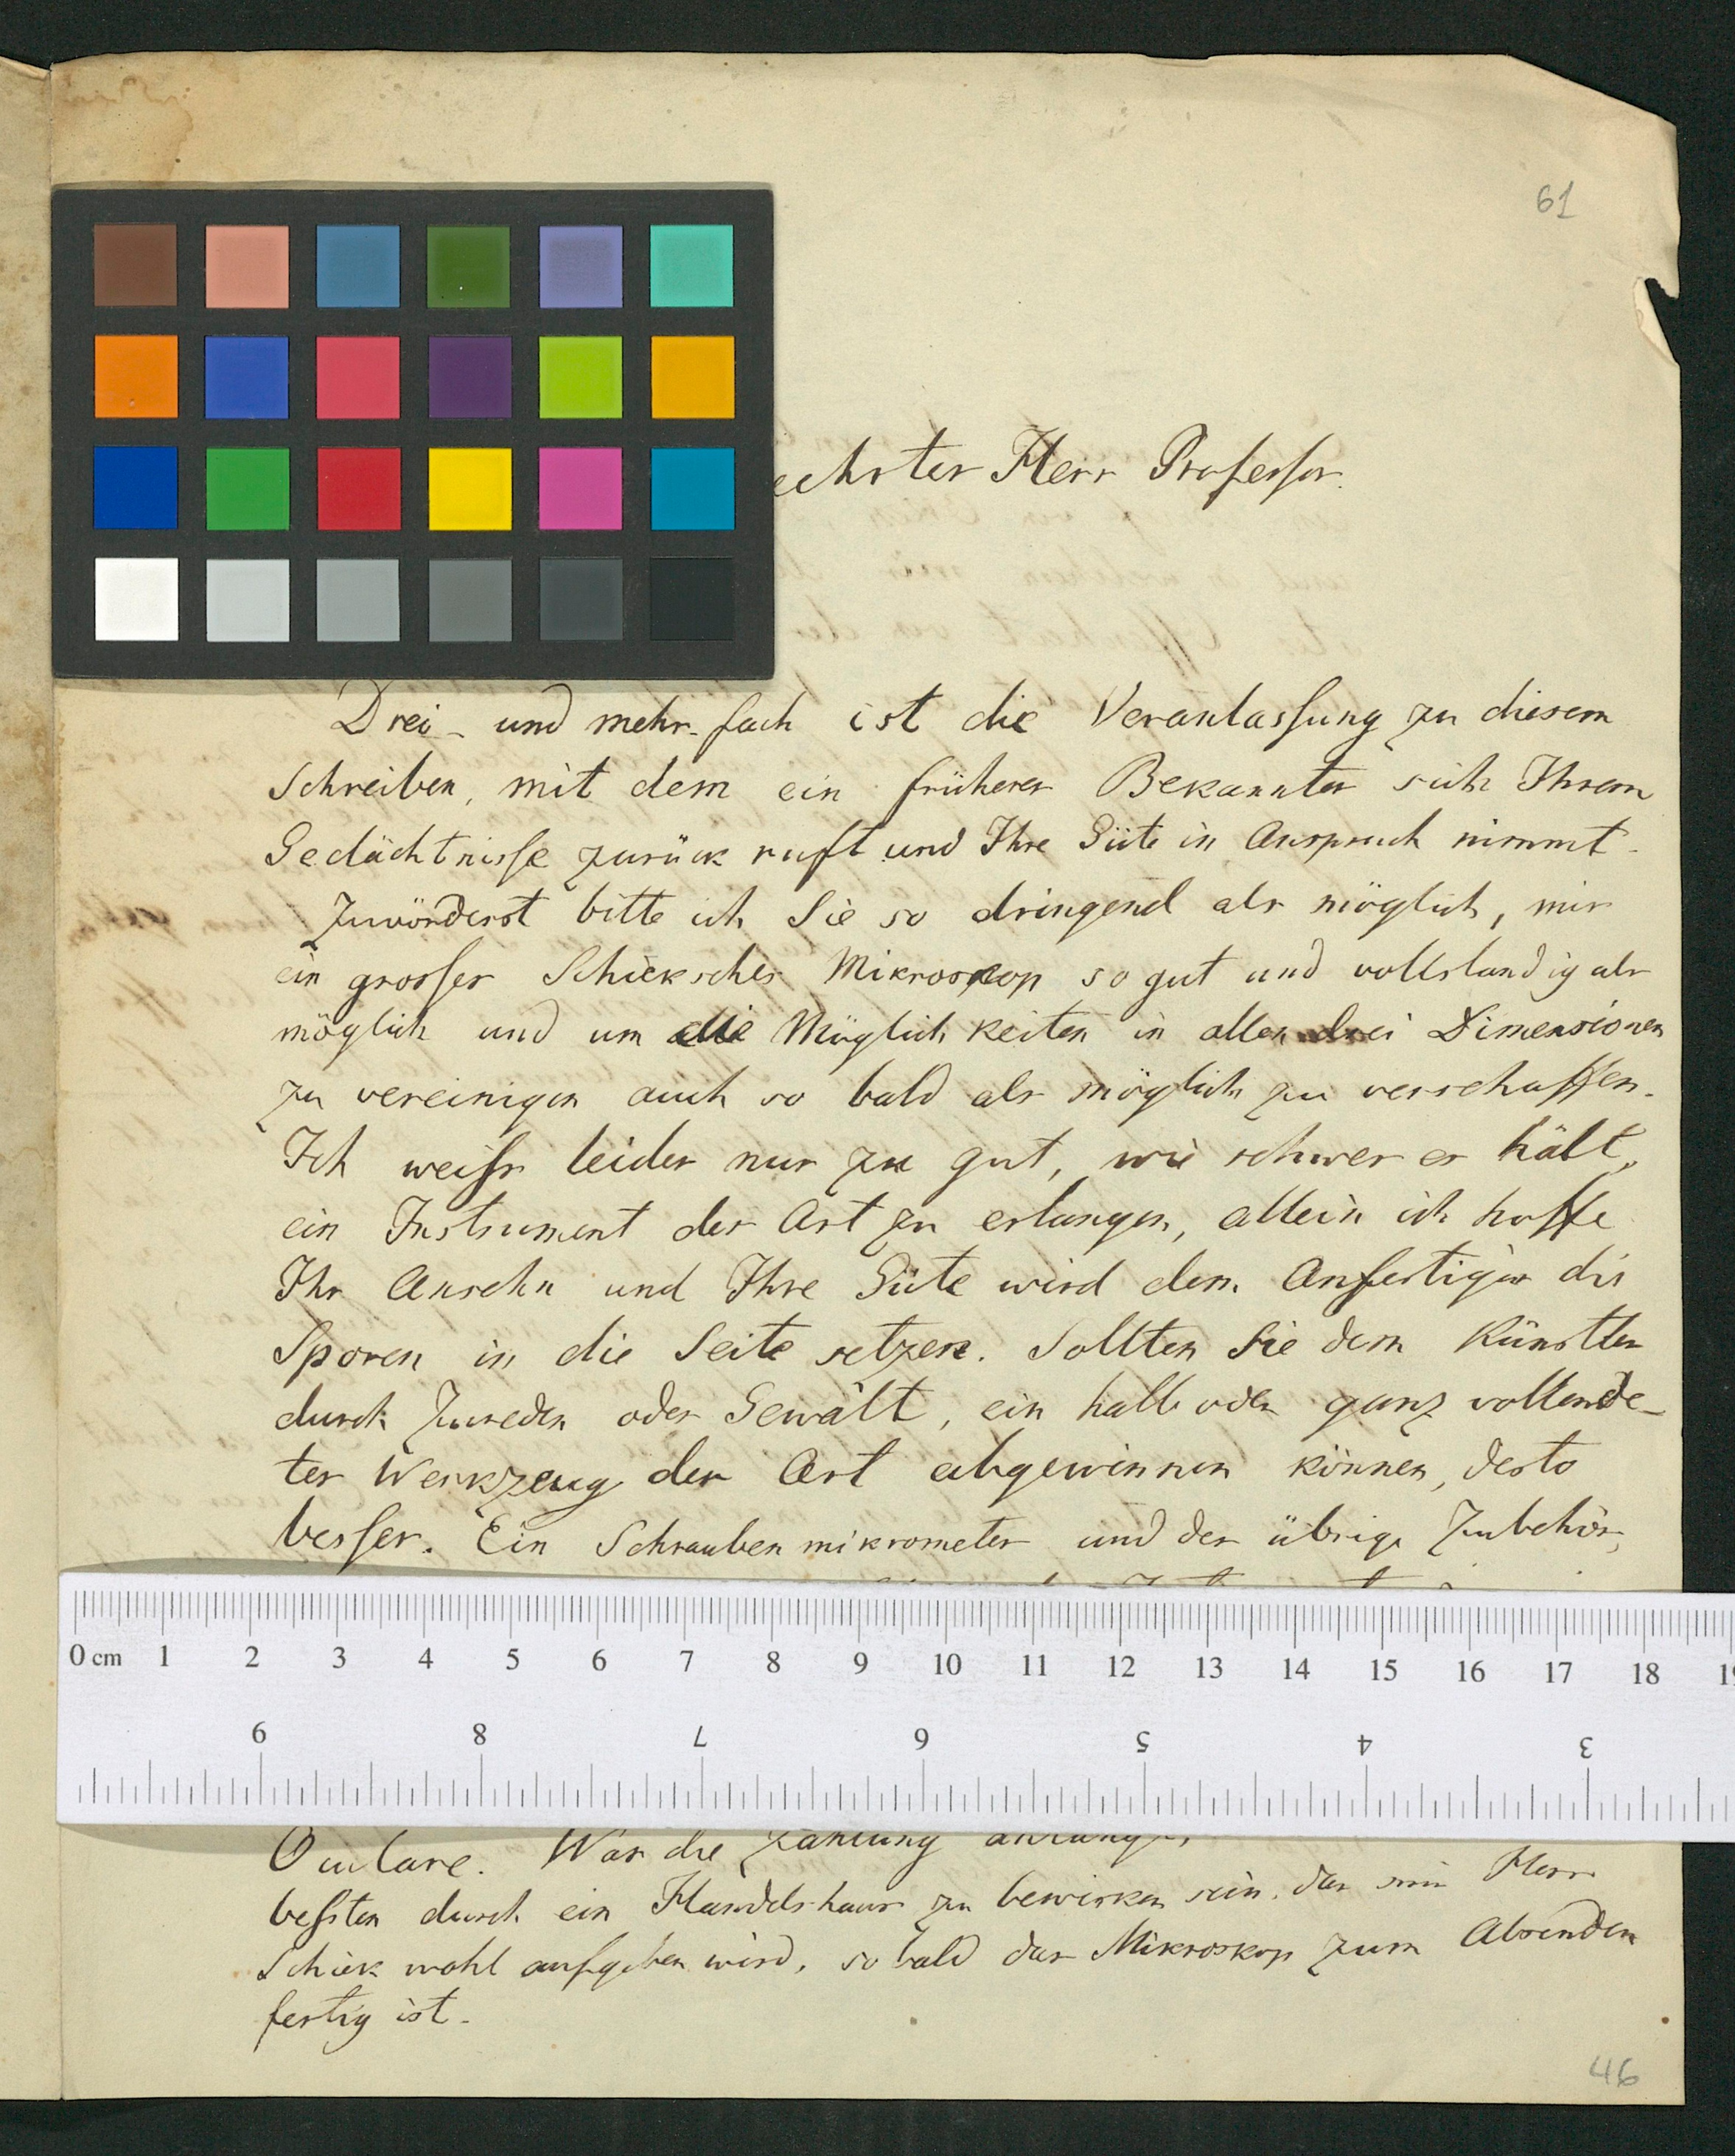 61
eehrter Herr Professor.
Drei- und mehr-fach ist die Veranlassung zu diesem
Schreiben, mit dem ein früherer Bekannter sich Ihrem
Gedächtnisse zurück ruft und Ihre Güte in Anspruch nimmt.
Zuvörderst bitte ich Sie so dringend als möglich, mir
ein grosses Schieksches Mikroskop so gut und vollstandig als
möglich und um die Möglichkeiten in allen drei Dimensionen
zu vereinigen auch so bald als möglich zu verschaffen.
Ich weiss leider nur zu gut, wie schwer es hält,
ein Instrument der Art zu erlangen, allein ich hoffe
Ihr Ansehn und Ihre Güte wird dem Anfertiger die
Sporen in die Seite setzen. Sollten Sie dem Künstler
durch Zureden oder Gewalt, ein halb oder ganz vollende-
tes Werkzeug der Art abgewinnen können, desto
besser. Ein Schraubenmikrometer und der übrige Zubehör,
0 cm 1 2 3 4 5 6 7 8 9 10 11 12 13 14 15 16 17 18 19
9 8 7 6 5 4 3
Oculare. Was die Zahlung anlangt,
besten durch ein Handelshaus zu bewirken sein, das mir Herr
Schiek wohl aufgeben wird, so bald das Mikroskop zum Absenden
fertig ist.
46